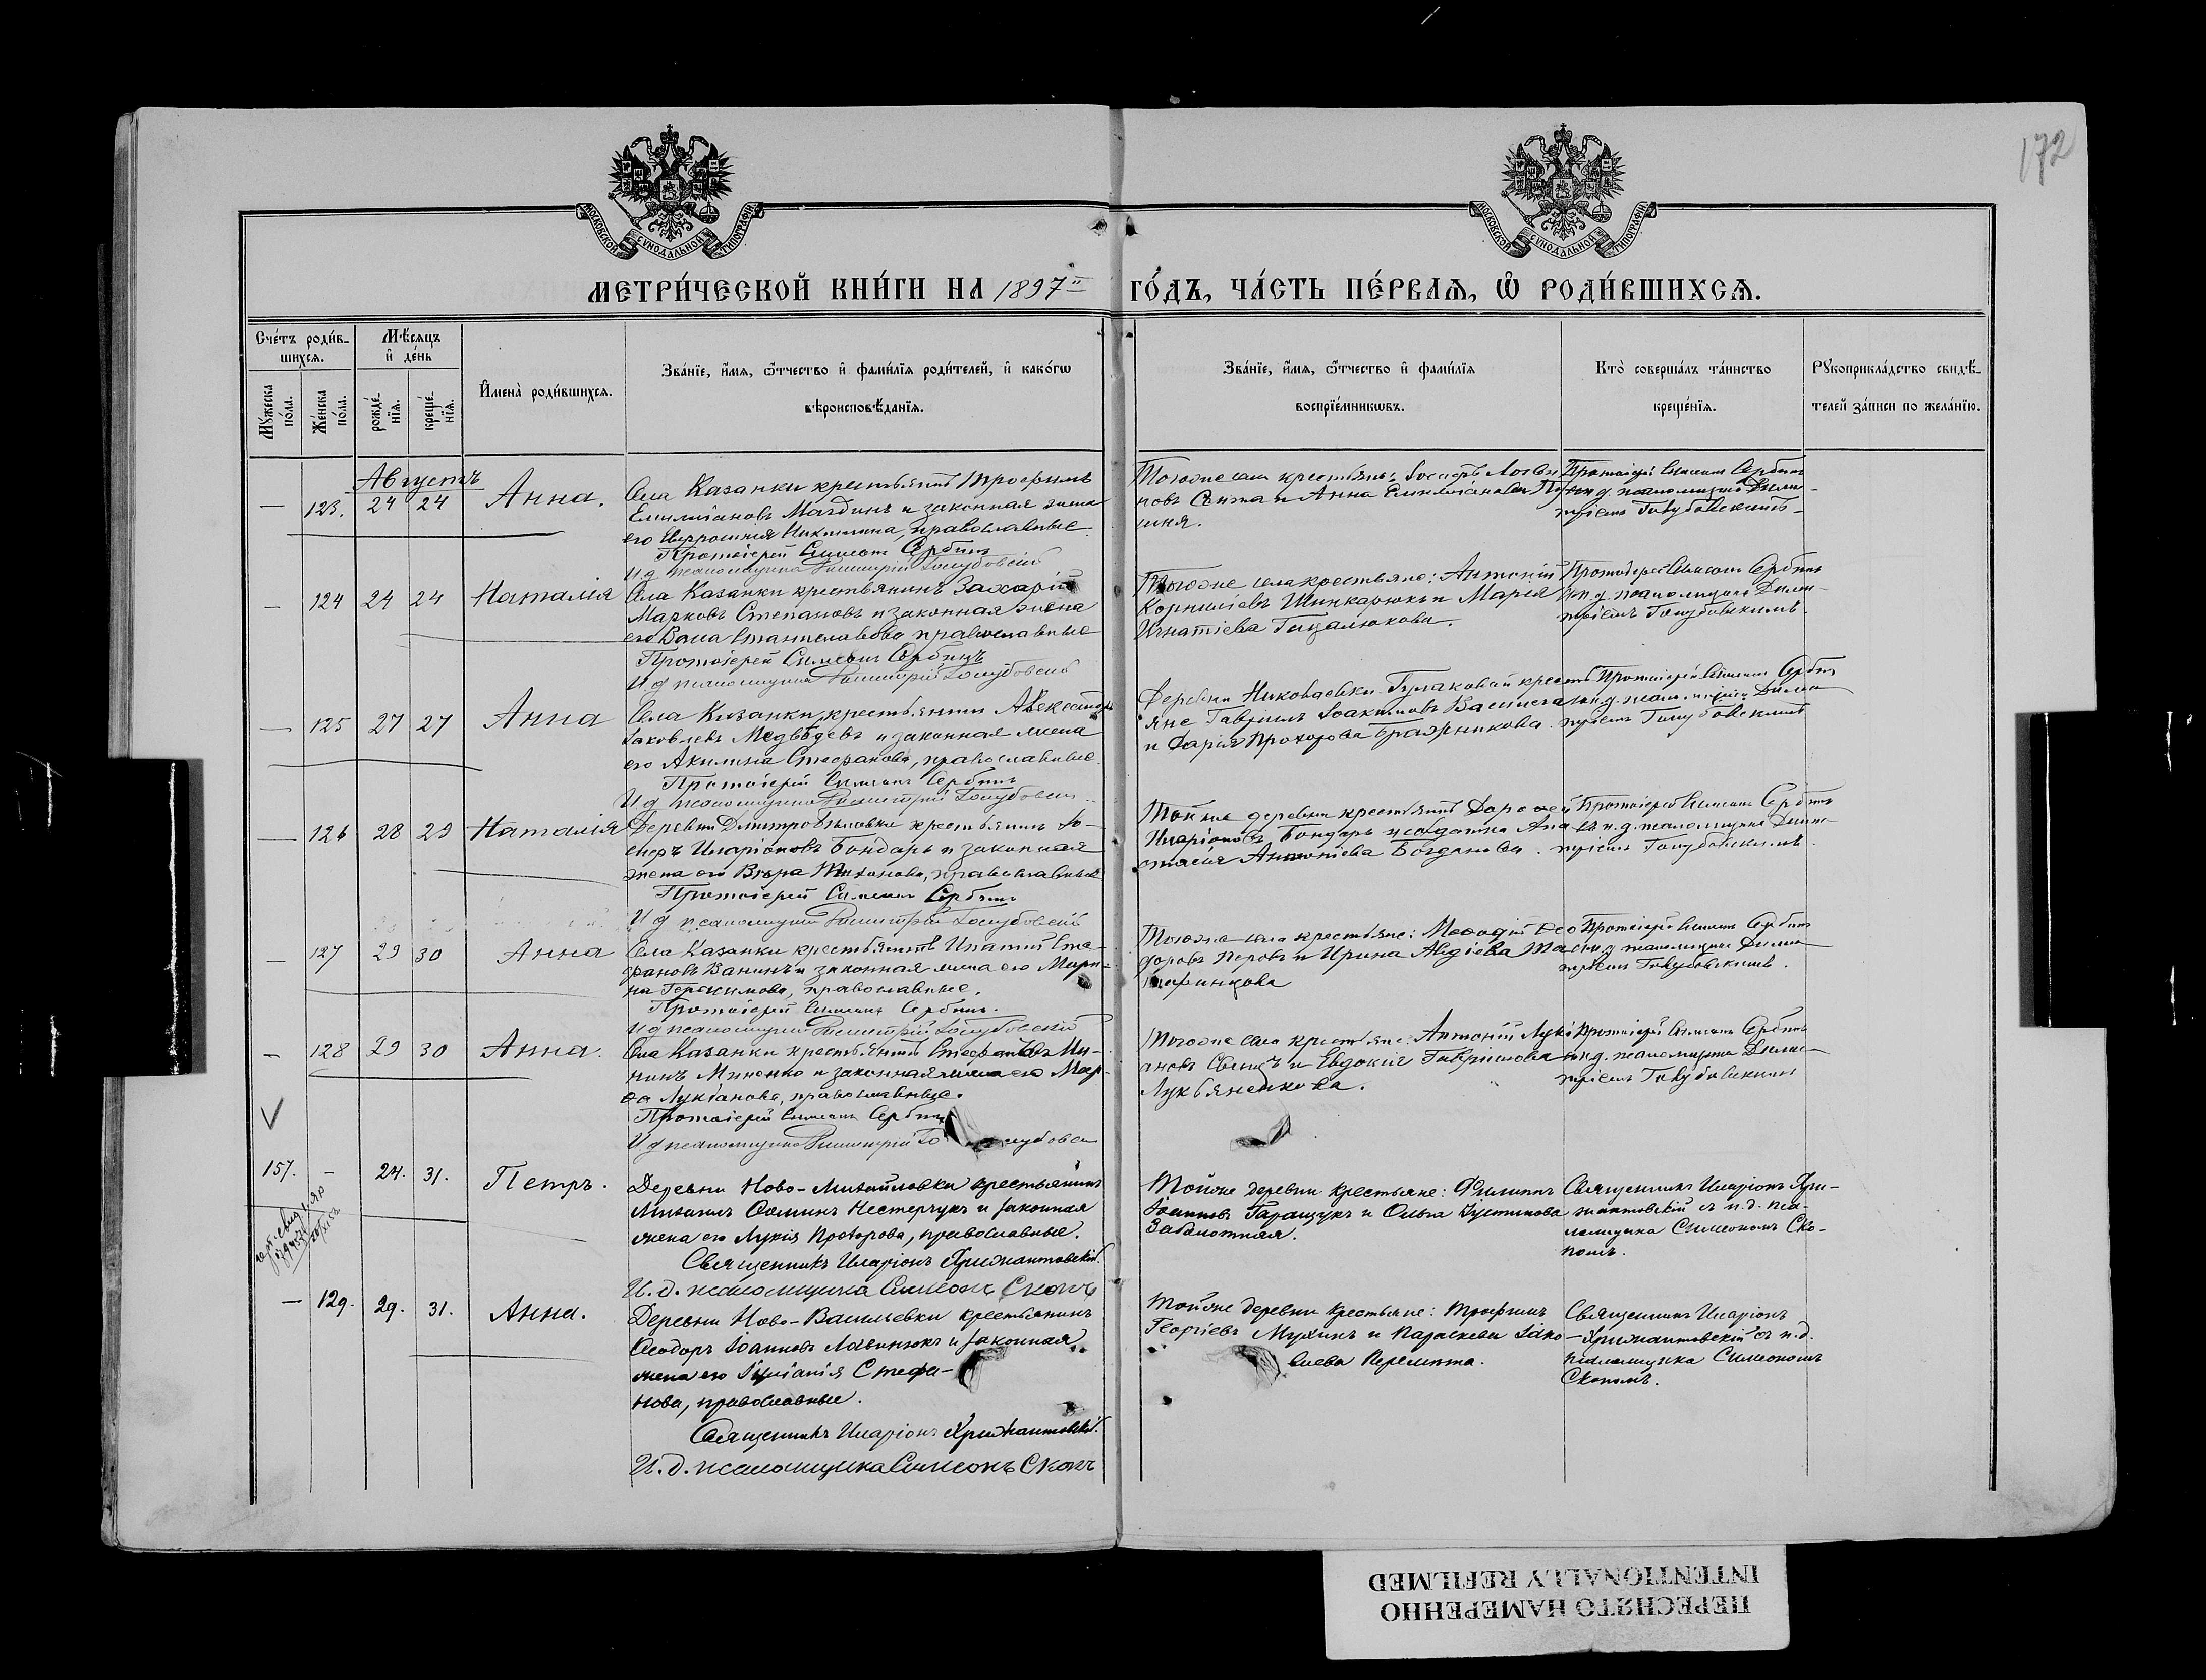 172
МОСКОВСКОЙ СѴНОДАЛЬНОЙ ТИПОГРАФІИ
МОСКОВСКОЙ СѴНОДАЛЬНОЙ ТИПОГРАФІИ
МЕТРИ́ЧЕСКОЙ КНИ́ГИ НА 1897 ГО́ДЪ, ЧА́СТЬ ПЕ́РВАѦ, Ѡ РОДИ́ВШИХСѦ.
Сче́тъ роди́в-
шихсѧ.
Мꙋ́жеска
по́ла.
Же́нска
по́ла.
Мѣ́сѧцъ
и҆ де́нь
рожде́-
нїѧ.
креще́-
нїѧ.
И҆мена̀ роди́вшихсѧ.
Зва́нїе, и҆́мѧ, ѻ҆́тчество и҆ фами́лїѧ роди́телей, и҆ како́гѡ
вѣроисповѣ́данїѧ.
Зва́нїе, и҆́мѧ, ѻ҆́тчество и҆ фами́лїѧ
воспрїе́мникѡвъ.
Кто̀ соверша́лъ та́инство
креще́нїѧ.
Рꙋкоприкла́дство свидѣ́-
телей за́писи по жела́нїю.
Августъ
— 123. 24 24 Анна.
Села Казанки крестьянинъ Трофимъ
Емиліановъ Магдинъ и законная жена
его Никитина, православные
Протоіерей Симеонъ Сербинъ
И д псаломщика Димитрій Голубовскій
Тогоже села крестьяне:
и Анна Емиліанова
Протоіерей Симеонъ Сербинъ
съ и.д. псаломщика Дими-
тріемъ Голубовскимъ
— 124 24 24 Наталія
Села Казанки крестьянинъ Захарій
Марковъ Степановъ и законная жена
его православные
Протоіерей Симеонъ Сербинъ
И д псаломщика Димитрій Голубовскій
Тогоже села крестьяне: Антоній
Корниліевъ Шинкарюкъ и Марія
Игнатіева Гицалюкова.
Протоіерей Симеонъ Сербинъ
съ и.д. псаломщика Дими-
тріемъ Голубовскимъ.
— 125 27 27 Анна
Села Казанки крестьянинъ Александръ
Іаковлевъ Медвѣдевъ и законная жена
его Акилина Стефанова, православные.
Протоіерей Симеонъ Сербинъ
И д псаломщика Димитрій Голубовскій
Деревни Николаевки-Гулаковой кресть-
яне Гавріилъ Іоакимовъ
и Дарія Прохорова Бражникова.
Протоіерей Симеонъ Сербинъ
съ и.д. псаломщика Дими-
тріемъ Голубовскимъ
— 126 28 29 Наталія
Деревни крестьянинъ Іо-
сифъ Иларіоновъ Бондарь и законная
жена его Вѣра Тихонова, православные
Протоіерей Симеонъ Сербинъ
И д псаломщика Димитрій Голубовскій
Той же деревни крестьянинъ Дорофей
Иларіоновъ Бондарь и солдатка Ана-
стасія Антоніева Богданова.
Протоіерей Симеонъ Сербинъ
съ и.д. псаломщика Дими-
тріемъ Голубовскимъ.
— 127 29 30 Анна
Села Казанки крестьянинъ Ипатій Сте-
фановъ Ванинъ и законная жена его Мари-
на Герасимова, православные.
Протоіерей Симеонъ Сербинъ.
И д псаломщика Димитрій Голубовскій
Тогоже села крестьяне: Меѳодій Ѳео-
доровъ Перовъ и Ирина Авдіева
Протоіерей Симеонъ Сербинъ
съ и.д. псаломщика Дими-
тріемъ Голубовскимъ.
— 128 29 30 Анна.
Села Казанки крестьянинъ Стефанъ Ми-
нинъ Миненко и законная жена его Мар-
ѳа Лукіанова, православные.
Протоіерей Симеонъ Сербинъ
И д псаломщика Димитрій Голубовскій
Тогоже села крестьяне: Антоній Лукі-
ановъ и Евдокія Гавріилова
Лукьяненкова.
Протоіерей Симеонъ Сербинъ
съ и.д. псаломщика Дими-
тріемъ Голубовскимъ
157. – 24. 31. Петръ.
Деревни Ново-Михайловки крестьянинъ
Михаилъ Нестерчукъ и законная
жена его Лукія Прохорова, православные.
Священникъ Иларіонъ Хрижантовскій.
И. д. псаломщика Симеонъ Скопъ
Тойже деревни крестьяне: Филиппъ
Іоанновъ Таращукъ и Ольга Іустинова
Заболотная.
Священникъ Иларіонъ Хри-
жантовскій съ и.д. пса-
ломщика Симеономъ Ско-
помъ.
— 129. 29. 31. Анна.
Деревни Ново-Васильевки крестьянинъ
Ѳеодоръ Іоанновъ и законная
жена его Іуліанія Стефа-
нова, православные.
Священникъ Иларіонъ Хрижантовскій.
И. д. псаломщика Симеонъ Скопъ
Тойже деревни крестьяне: Трофимъ
Георгіевъ Мухинъ и Параскева Іако-
влева
Священникъ Иларіонъ
Хрижантовскій съ и.д.
псаломщика Симеономъ
Скопомъ.
ПЕРЕСНЯТО НАМЕРЕННО
INTENTIONALLY REFILMED